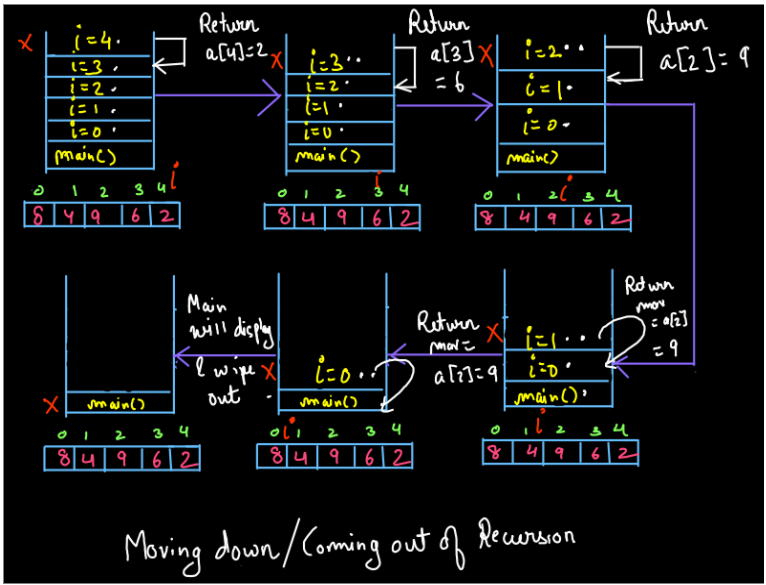 i=4.
i=3.
i=2.
i=1.
i=0.
main()
Return
a[4]=2
X
i
0 1 2 3 4
8 4 9 6 2
i=3..
i=2.
i=1.
i=0.
main()
Return
a[3]
= 6
X
i
0 1 2 3 4
8 4 9 6 2
i=2..
i=1.
i=0.
main()
Return
a[2]= 9
X
i
0 1 2 3 4
8 4 9 6 2
i=1..
i=0.
main().
Return
= a[2]
= 9
X
i
0 1 2 3 4
8 4 9 6 2
Return
a[2]=9
i=0..
main()
X
i
0 1 2 3 4
8 4 9 6 2
Main
will display
& wipe
out .
main()
X
0 1 2 3 4
8 4 9 6 2
Moving down/Coming out of Recursion